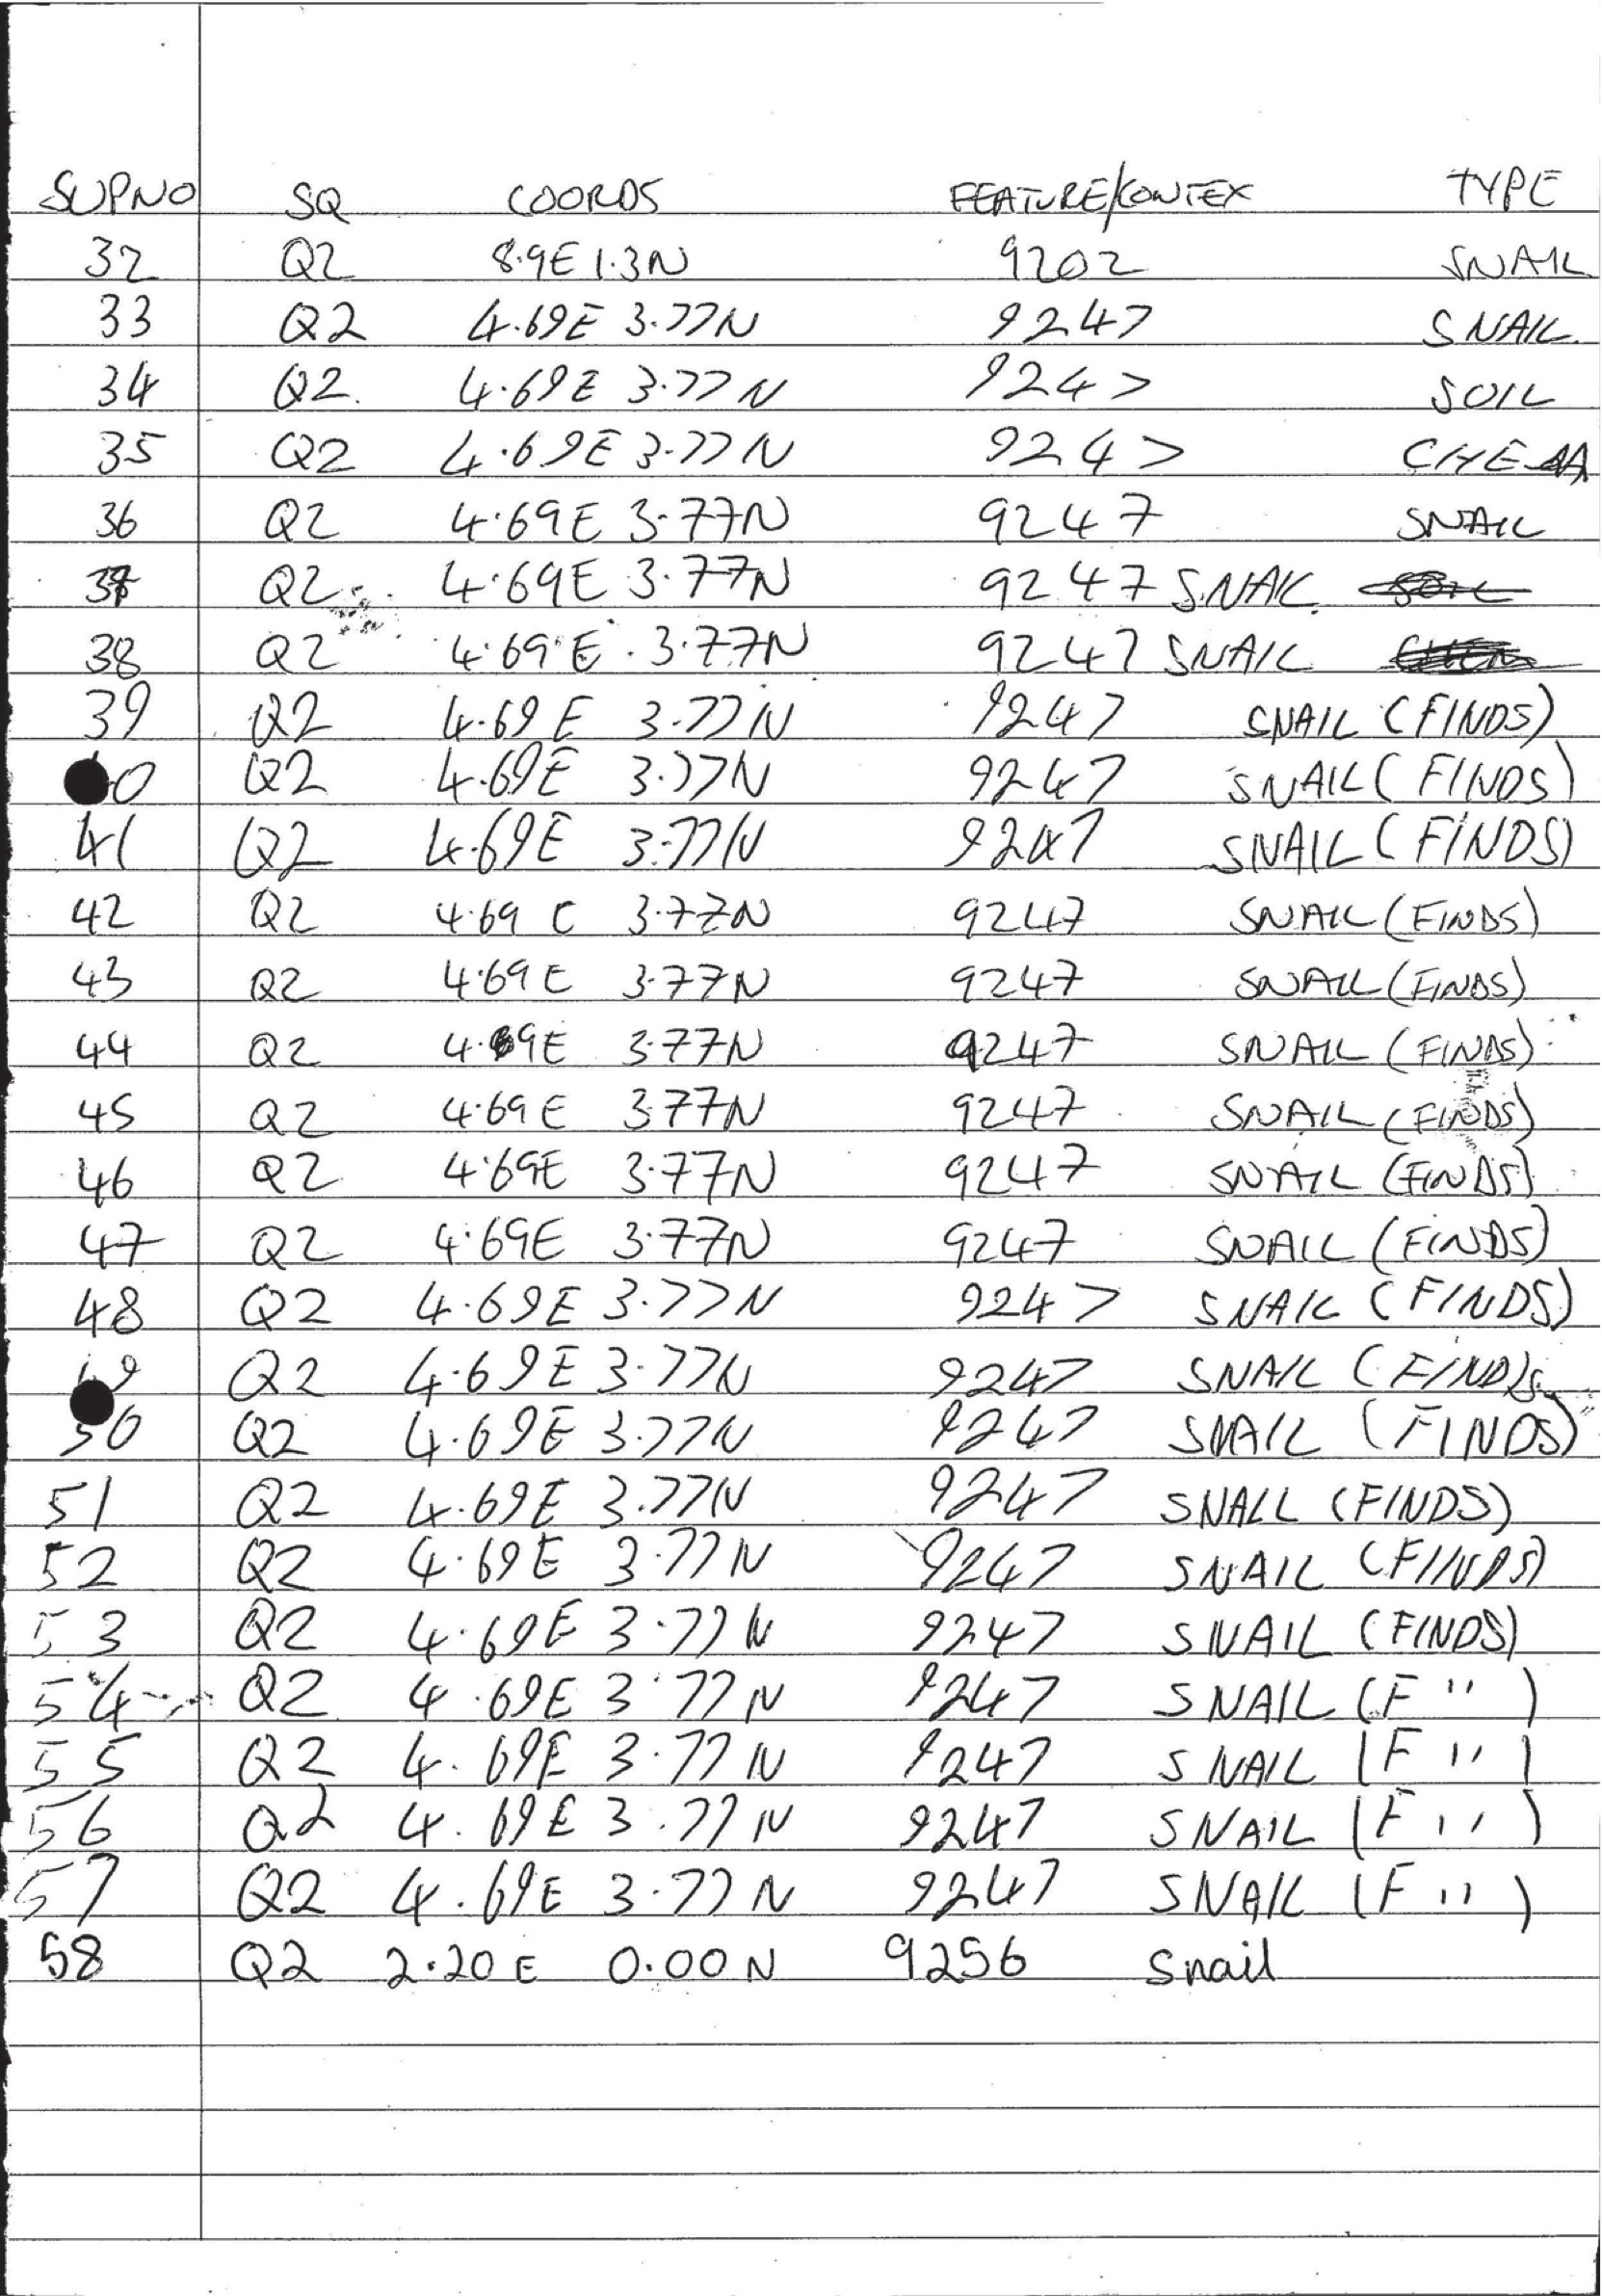 SUPNO SQ COORDS FEATURE/CONTEX TYPE
32 Q2 8.9E 1.3N 9202 SNAIL
33 Q2 4.69E 3.77N 9247 SNAIL
34 Q2 4.69E 3.77N 9247 SOIL
35 Q2 4.69E 3.77N 9247 CHEM
36 Q2 4.69E 3.77N 9247 SNAIL
37 Q2 4.69E 3.77N 9247 SNAIL SOIL
38 Q2 4.69E 3.77N 9247 SNAIL CHEM
39 Q2 4.69E 3.77N 9247 SNAIL (FINDS)
40 Q2 4.69E 3.77N 9247 SNAIL (FINDS)
41 Q2 4.69E 3.77N 9247 SNAIL (FINDS)
42 Q2 4.69E 3.77N 9247 SNAIL (FINDS)
43 Q2 4.69E 3.77N 9247 SNAIL (FINDS)
44 Q2 4.69E 3.77N 9247 SNAIL (FINDS)
45 Q2 4.69E 3.77N 9247 SNAIL (FINDS)
46 Q2 4.69E 3.77N 9247 SNAIL (FINDS)
47 Q2 4.69E 3.77N 9247 SNAIL (FINDS)
48 Q2 4.69E 3.77N 9247 SNAIL (FINDS)
49 Q2 4.69E 3.77N 9247 SNAIL (FINDS)
50 Q2 4.69E 3.77N 9247 SNAIL (FINDS)
51 Q2 4.69E 3.77N 9247 SNAIL (FINDS)
52 Q2 4.69E 3.77N 9247 SNAIL (FINDS)
53 Q2 4.69E 3.77N 9247 SNAIL (FINDS)
54 Q2 4.69E 3.77N 9247 SNAIL (F ")
55 Q2 4.69E 3.77N 9247 SNAIL (F ")
56 Q2 4.69E 3.77N 9247 SNAIL (F ")
57 Q2 4.69E 3.77N 9247 SNAIL (F ")
58 Q2 2.20E 0.00N 9256 Snail